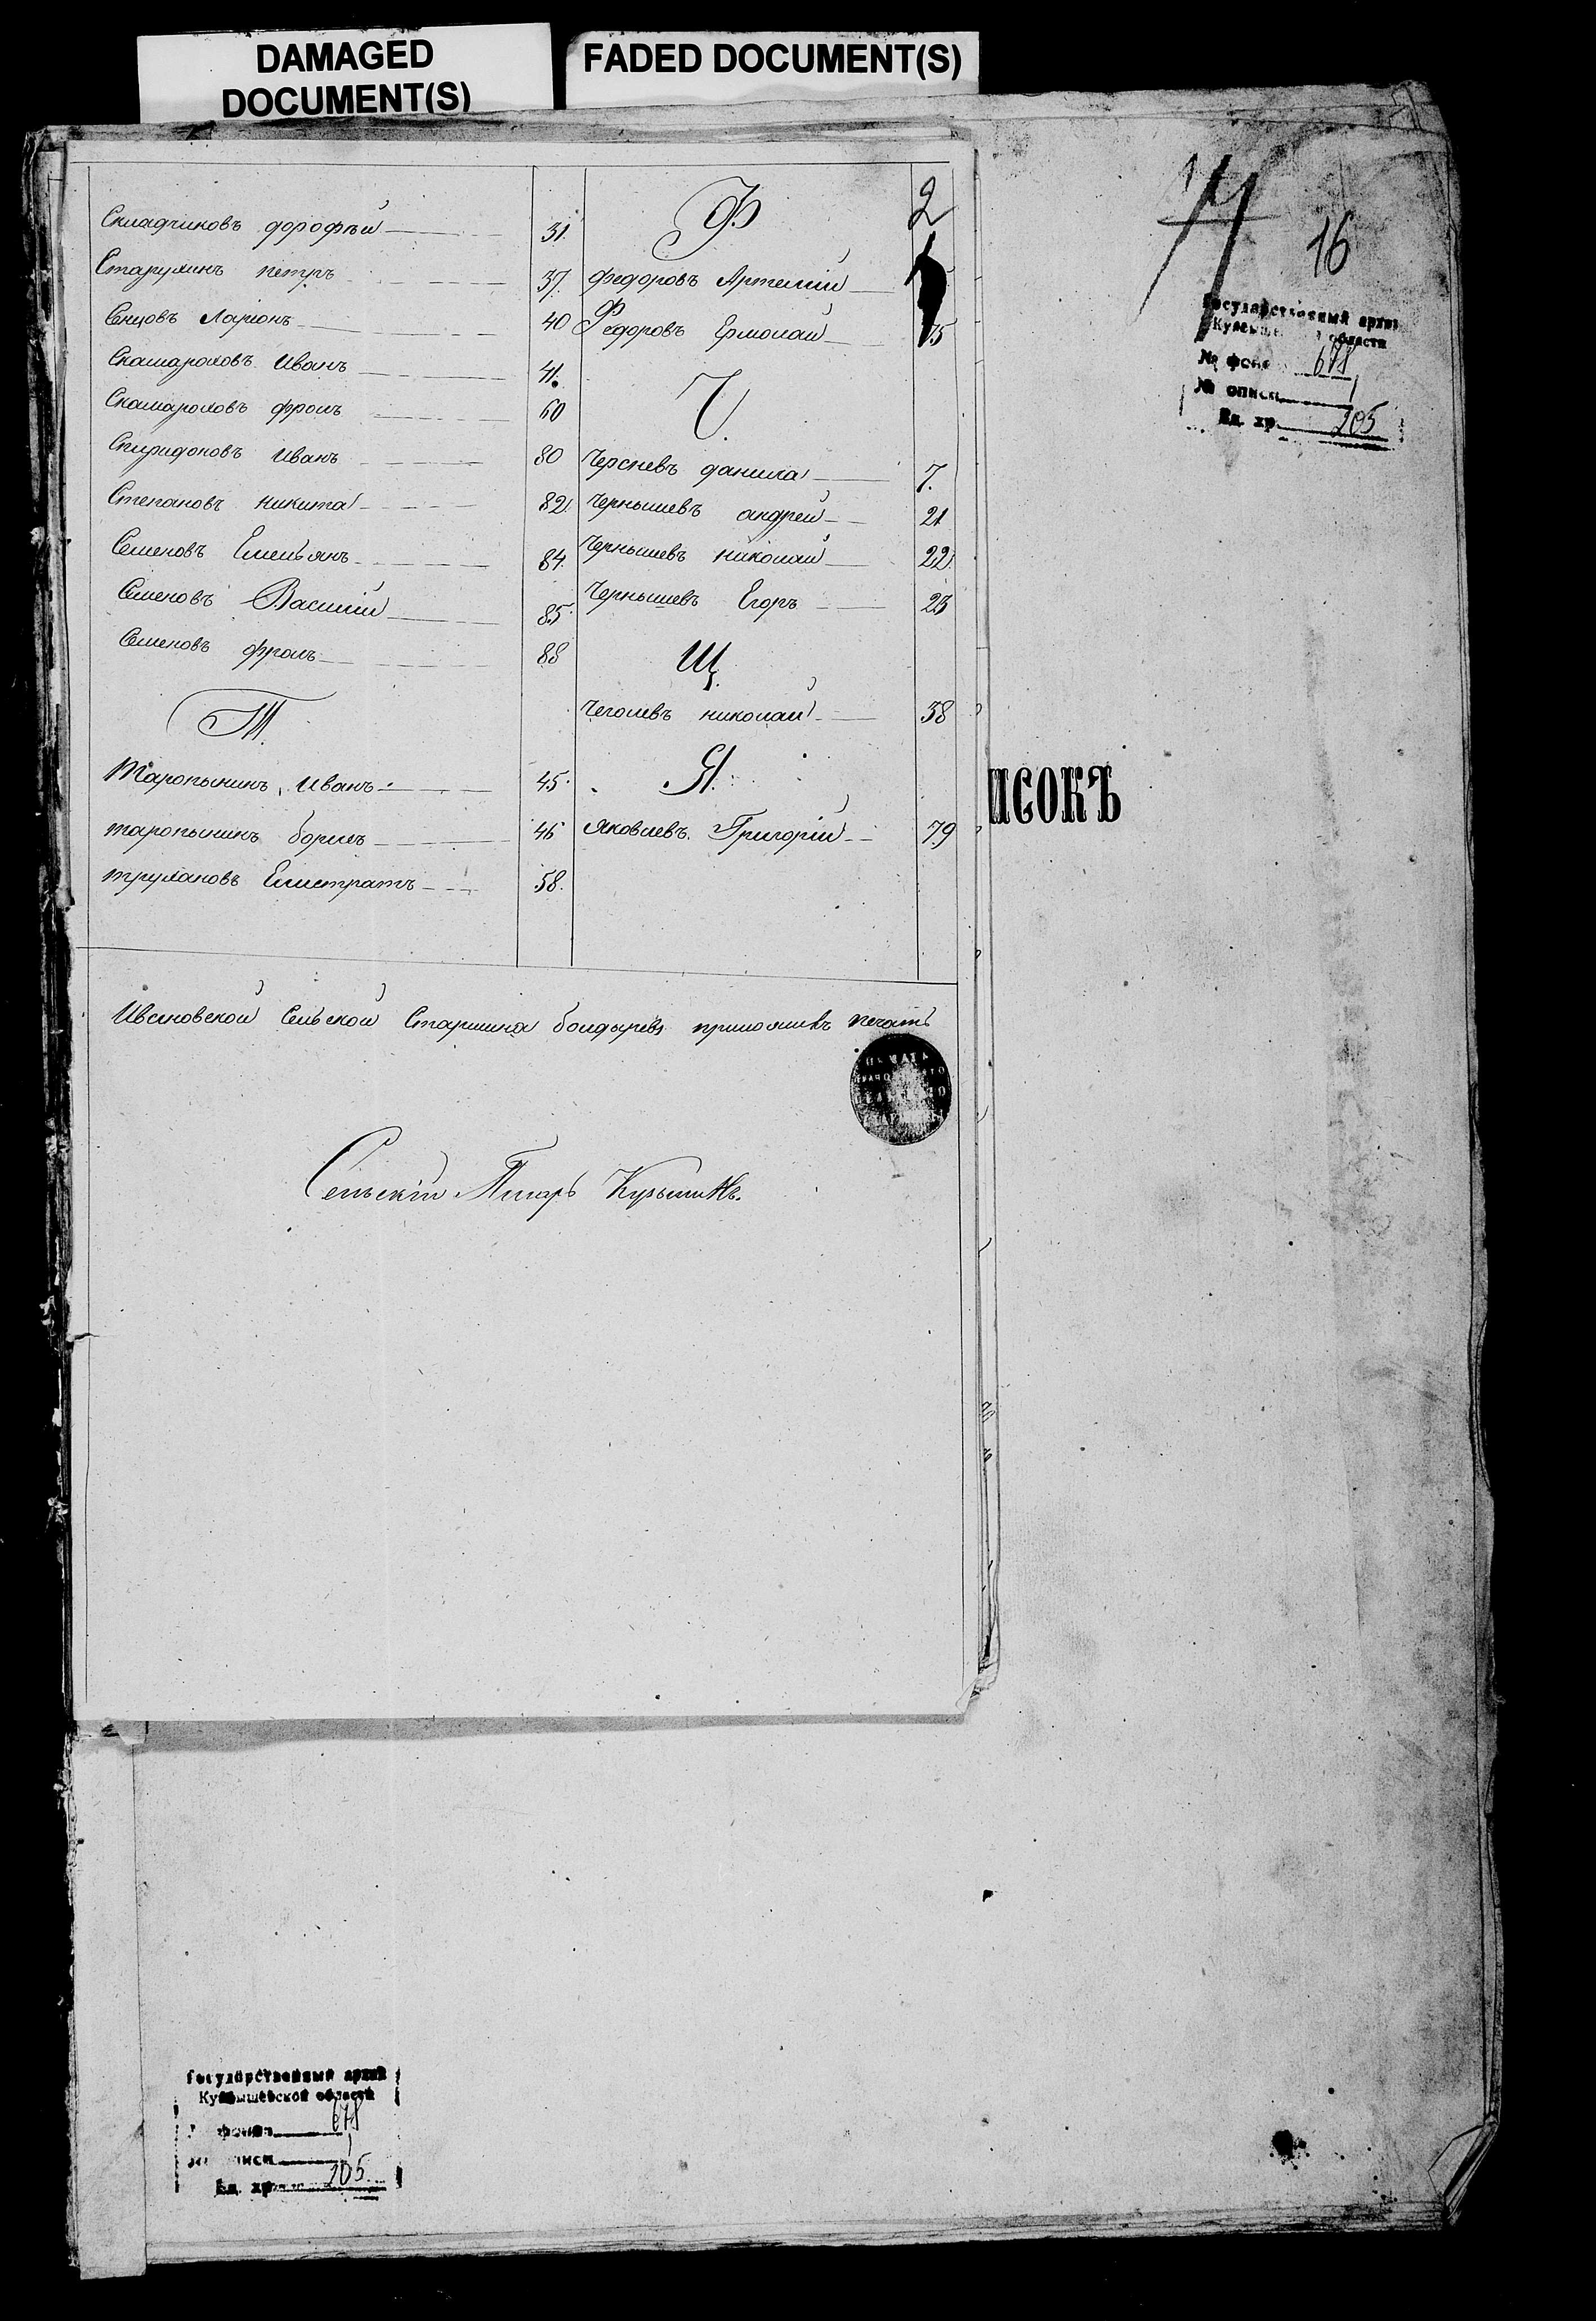 DAMAGED
DOCUMENT(S)
FADED DOCUMENT(S)
Складчиковъ дорофѣй 31.
Старухинъ петръ 37
Сенцовъ Ларіонъ 40
Скамароховъ Иванъ 41.
Скамароховъ фролъ 60
Спиридоновъ Иванъ 80
Степановъ никита 82
Семеновъ Емельянъ 84.
Семеновъ Василий 85.
Семеновъ фролъ 88
Т.
Таропынинъ, Иванъ 45.
таропынинъ борисъ 46
трухановъ Елистратъ 58.
2
Ф
федоровъ Артемий
Федоровъ Ермолай
Ч.
Черсневъ данила 7.
Чернышевъ андрей 21
Чернышевъ николай 22.
Чернышевъ Егоръ 23
Щ.
Чеголевъ николай 38
Я.
Яковлевъ. Григорій 79
Сельской Старшина болдыревъ приложилъ печать
Сельскій Писарь Кузьминъ.
ИСОКЪ
16
Государственный архив
области
№ фонд 678
№ описи 1
Ед. хр. 205
Государственный архив
Куйбышевской области
фонда 678
1
Ед. хр. 205